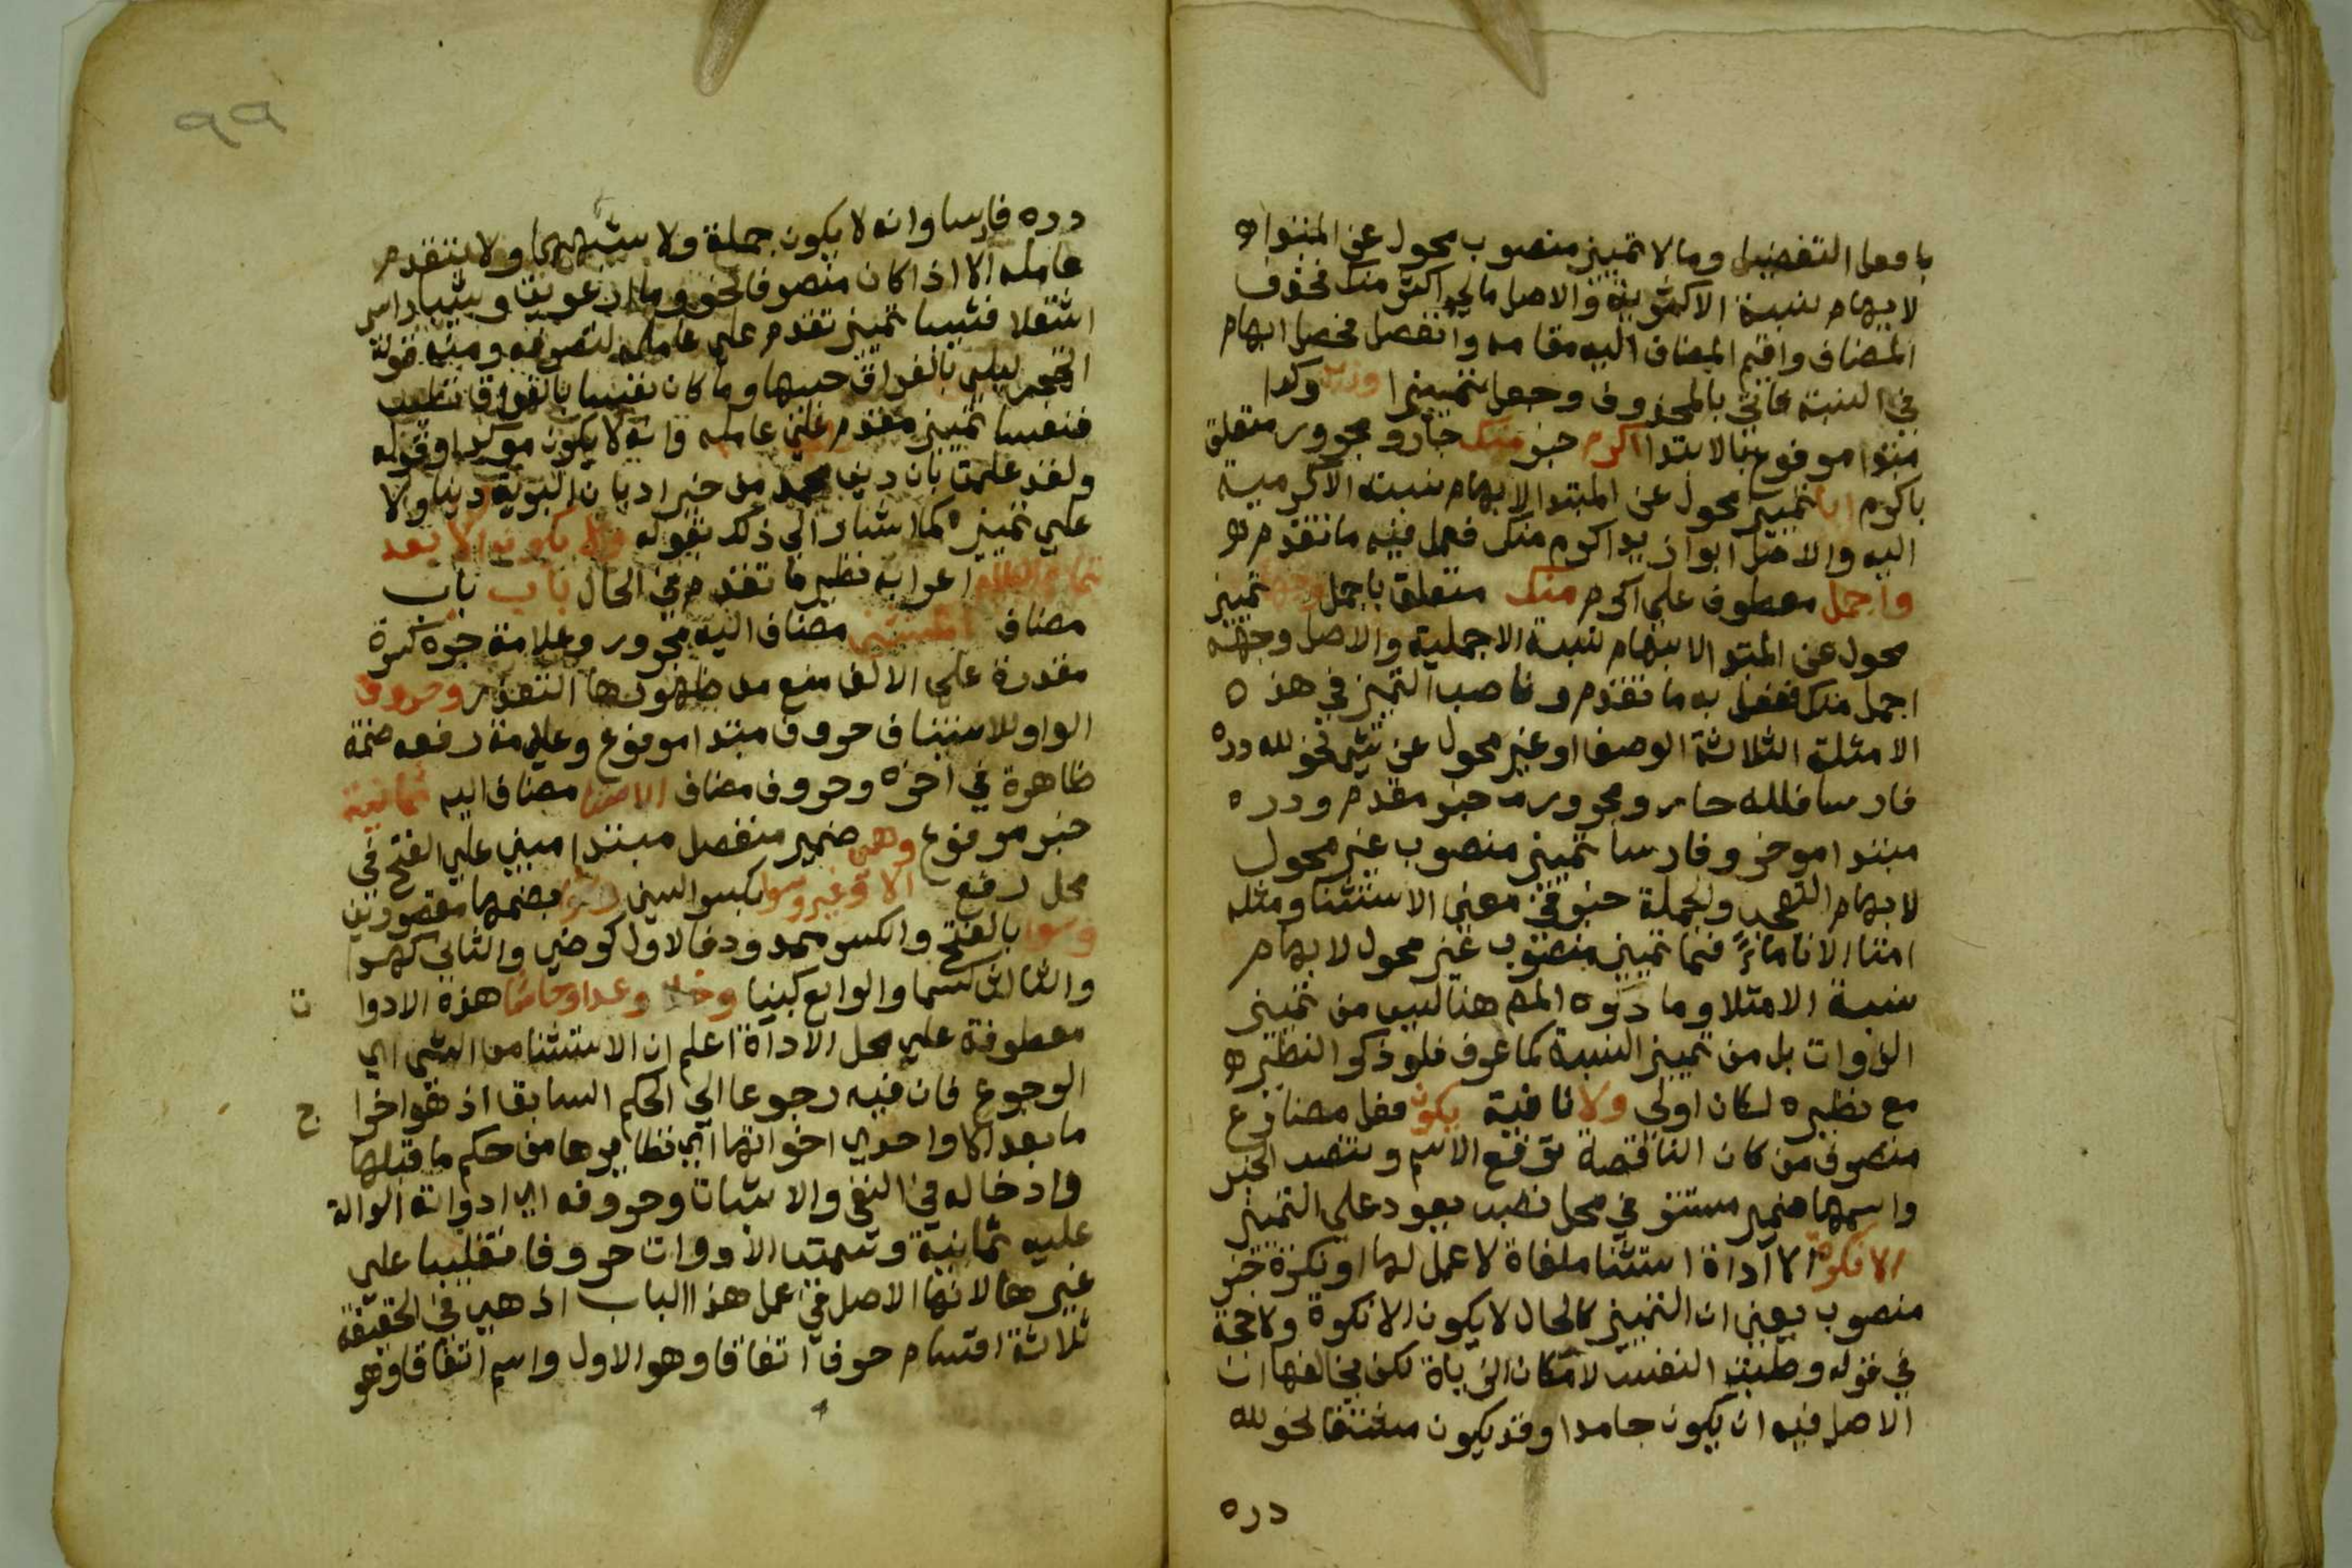 بافعل التفضيل ومالا تمييز منصوب محول عن المبتدا
لابهام نسبة الاكثرية والاصل مالي اكثر منك فحذف
المضاف واقيم المضاف اليه مقامه وانفصل فحصل ابهام
في النسبة فاتي بالمحذوف وجعل تمييزا وزيد وكذا
مبتدا مرفوع بالابتدا اكرم خبر منك جار ومجرور متعلق
باكرم ابا تمييز محول عن المبتدا لابهام نسبة الاكرمية
اليه والاصل ابوا زيد اكرم منك فعمل فيه ما تقدم
واجمل معطوف علي اكرم منك متعلق باجمل وجها تمييز
محول عن المبتدا لابهام نسبة الاجملية والاصل وجهه
اجمل منك ففعل به ما تقدم وناصب التمييز في هذه
الامثلة الثلاثة الوصف او غير محول عن شي نحو لله دره
فارسا فلله جار ومجرور خبر مقدم ودره
مبتدا موخر وفارسا تمييز منصوب غير محول
لابهام التعجب والجملة خبر في معني الاستثنا ومثله
امتلا الانا ماءً فما تمييز منصوب غير محول لابهام
نسبة الامتلا وما ذكره المص هنا ليس من تمييز
الذوات بل من تمييز النسبة كما عرف فلو ذكر النظير
مع نظيره لكان اولي ولا نافية يكون فعل مضارع
متصرف من كان الناقصة ترفع الاسم وتنصب الخبر
واسمها ضمير مستتر في محل نصب يعود علي التمييز
الا نكرة الا اداة استثنا ملغاة لا عمل لها ونكرة خبر
منصوب يعني ان التمييز كالحال لا يكون الا نكرة ولا حجة
في قوله وطبت النفس لامكان الزيادة لكن يخالفها ان
الاصل فيه ان يكون جامدا وقد يكون مشتقا نحو لله
دره
٩٩
دره فارسا وانه لا يكون جملة ولا شبهها ولا يتقدم
عامله الا اذا كان متصرفا نحو وما ارعويت وشيبا راسي
اشتعلا فشيبا تمييز تقدم علي عامله لتصرفه ومنه قوله
اتهجر ليلي بالفراق حبيبها وما كان نفسا بالفراق تطيب
فنفسا تمييز مقدم علي عامله وانه لا يكون موكدا وقوله
ولقد علمت بان دين محمد من خير اديان البرية دينا ولا
علي تمييزه كما اشار الي ذلك بقوله ولا يكون الا بعد
تمام الكلام اعرابه نظير ما تقدم في الحال باب باب
مضاف المستثني مضاف اليه مجرور وعلامة جره كسرة
مقدرة علي الالف منع من ظهورها التعذر وحروف
الواو للاستيناف حروف مبتدا مرفوع وعلامة رفعه ضمة
ظاهرة في اخره وحروف مضاف الاستثنا مضاف اليه ثمانية
خبر مرفوع وهي ضمير منفصل مبتدا مبني علي الفتح في
محل رفع الا وغير وسوا بكسر السين وسوا بضمها مقصورتين
وسوا بالفتح والكسر ممدودفالاول كرضي والثاني كهدا
والثالث كسما والرابع كبنيا وخلا وعدا وحاشا هذه الادوا
ت
معطوفة علي محل الاداة اعلم ان الاستثنا من الشي اي
الرجوع فان فيه رجوعا الي الحكم السابق اذ هو اخرا
ج
ما بعد الا واحدي اخواتها اي نظايرها من حكم ما قبلها
وادخاله في النفي والاثبات وحروفه اي ادواته الدالة
عليه ثمانية وتسمية الادوات حروفا تغليبا علي
غيرها لانها الاصل في عمل هذا الباب اذ هي في الحقيقة
ثلاثة اقسام حرف اتفاقا وهو الاول واسم اتفاقا وهو